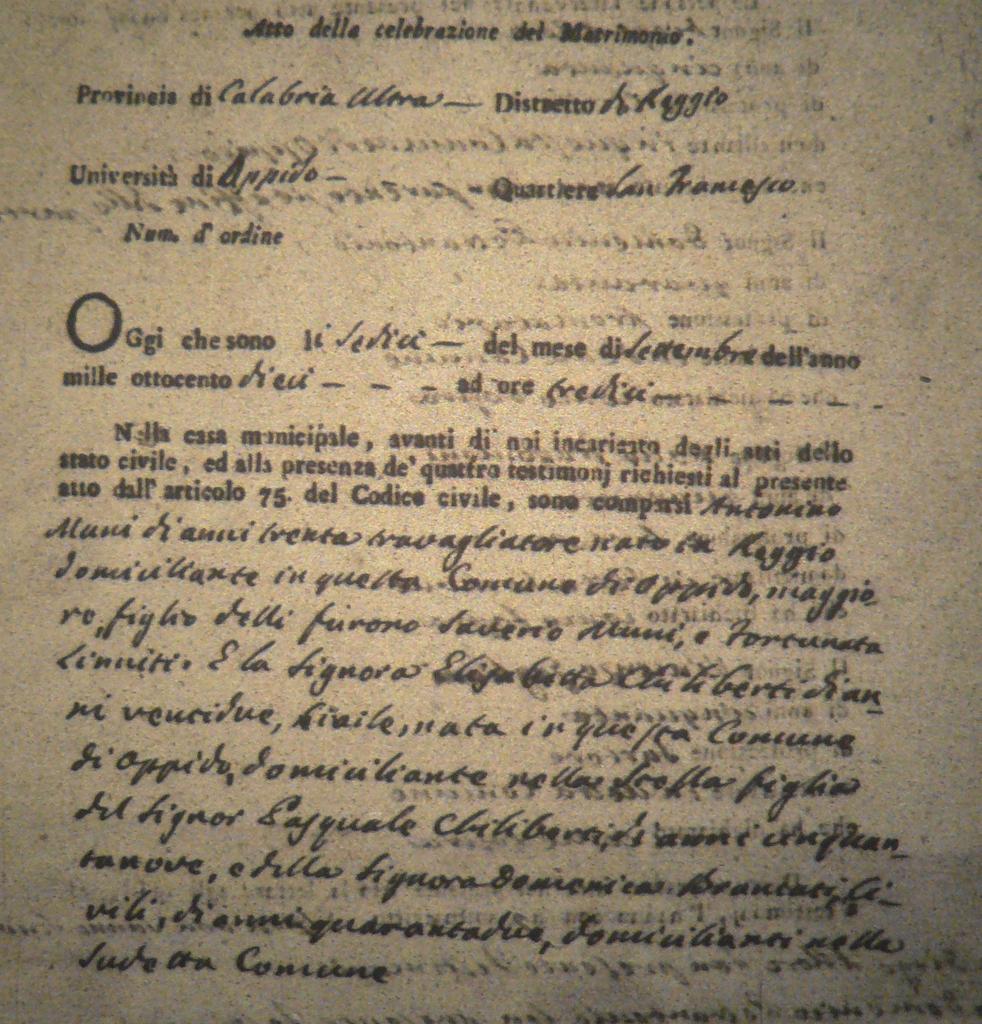 Atto della celebrazione del Matrimonio.
Provincia di Calabria Ultra — Distretto di Reggio
Università di Oppido — Quartiere San Francesco
Num. d' ordine
OGgi che sono li sedici — del mese di Settembre dell'anno
mille ottocento dieci — — — ad ore tredici — — — —
Nella casa municipale, avanti di noi incaricato degli atti dello
stato civile, ed alla presenza de' quattro testimonj richiesti al presente
atto dall' articolo 75. del Codice civile, sono comparsi Antonino
Muni di anni trenta travagliatore nato in Reggio
domiciliante in questa Comune di Oppido, maggio-
re, figlio delli furono Saverio Muni, e Fortunata
E la Signora Elisabetta Chiliberti di an-
ni ventidue, Civile, nata in questa Comune
di Oppido, domiciliante nella stessa figlia
del Signor Pasquale Chiliberti, di anni cinquan-
tanove, e della Signora Domenica Brancati, Ci-
vili, di anni quarantadue, domicilianti nella
sudetta Comune